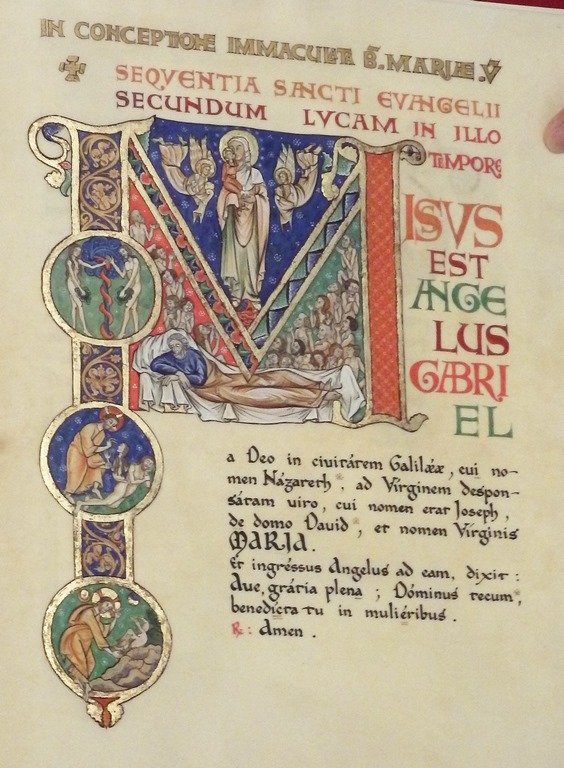 IN CONCEPTIONE IMMACULATA B. MARIÆ. V
SEQVENTIA SANCTI EVANGELII
SECUNDUM LVCAM IN ILLO
TEMPORE
MISVS
EST
ANGE
LUS
GABRI
EL
a Deo in civitátem Galilǽæ, cui no-
men Názareth, ad Vírginem despon-
sátam viro, cui nomen erat Joseph,
de domo David, et nomen Vírginis
MARIA.
Et ingréssus Angelus ad eam, dixit:
Ave, grátia plena; Dóminus tecum,
benedícta tu in muliéribus.
R: Amen.